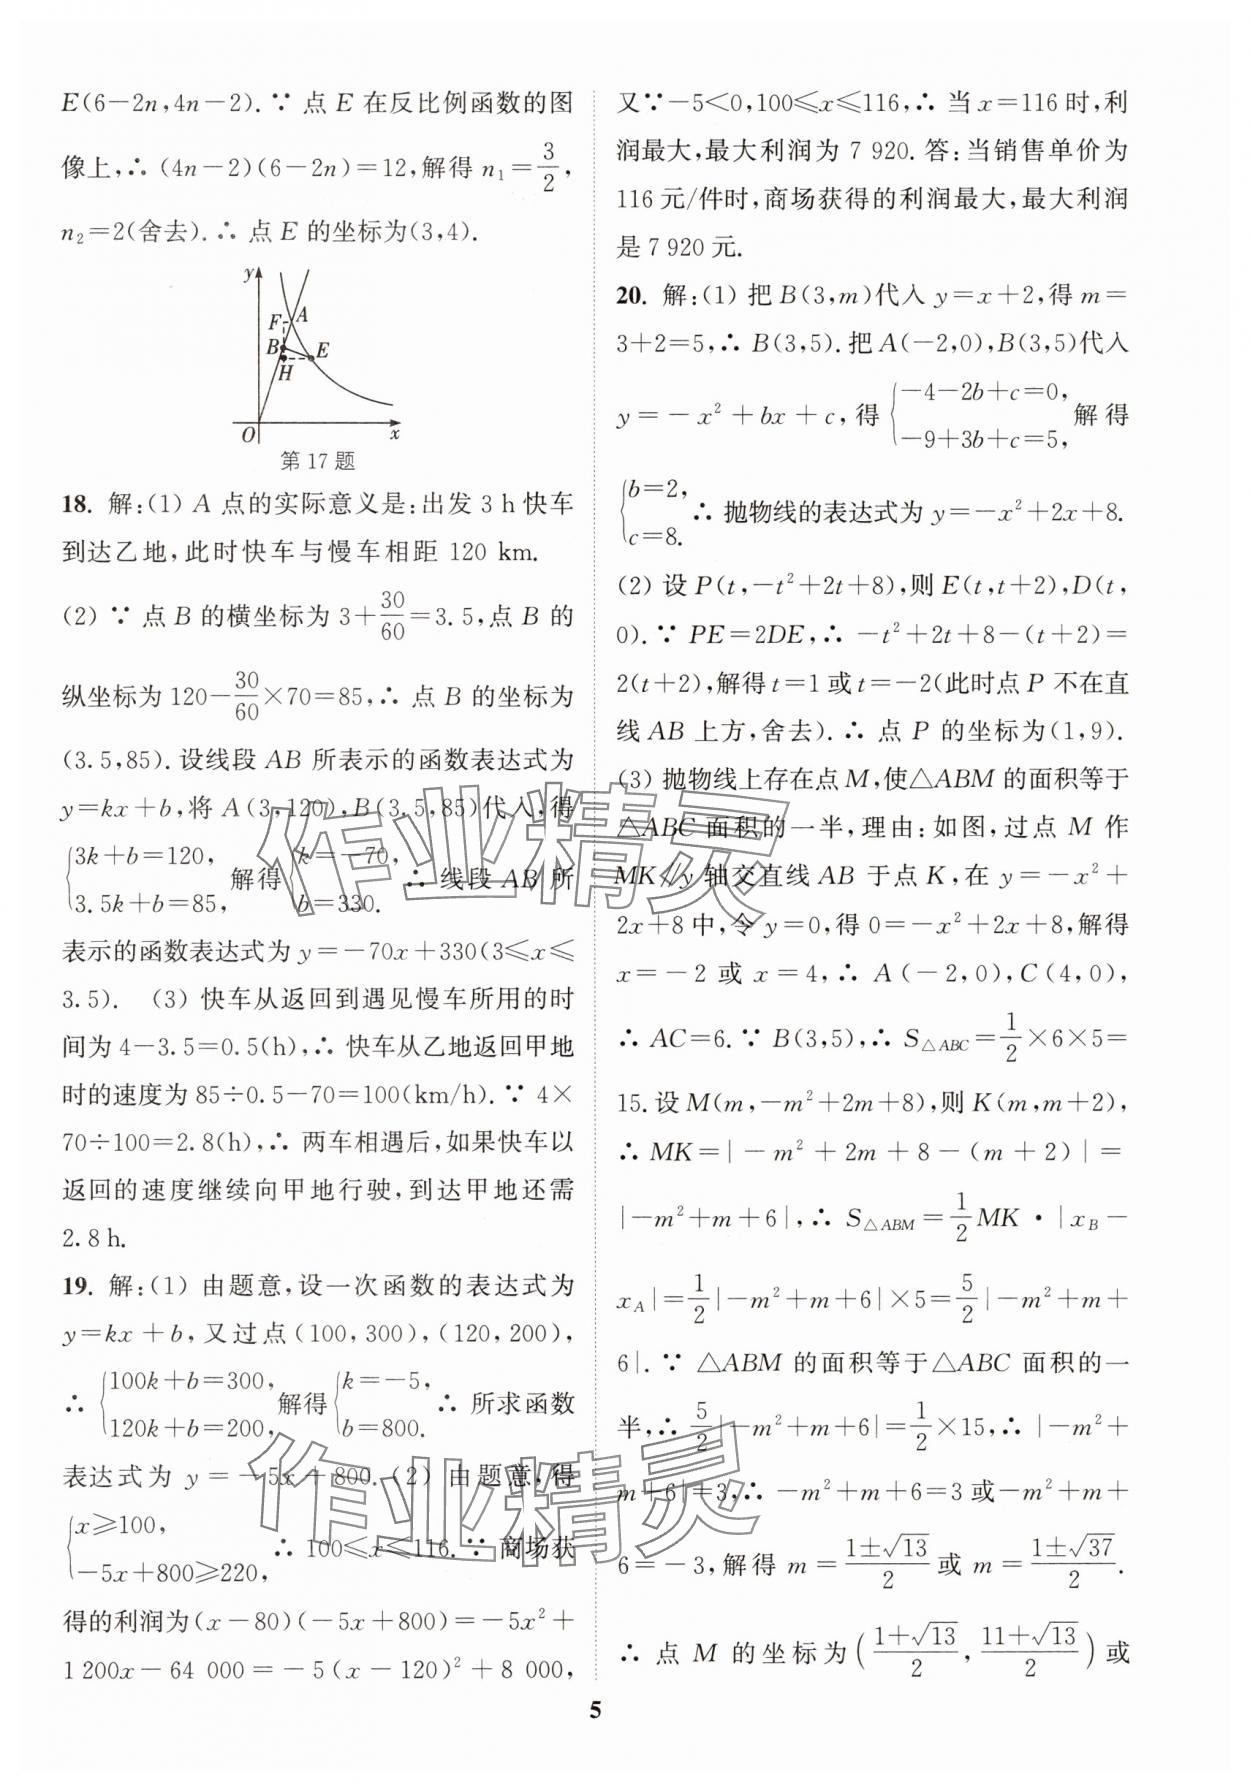 E(6－2n,4n－2).∵ 点 E 在反比例函数的图
像上,∴ (4n－2)(6－2n)＝12,解得 n₁＝3/2,
n₂＝2(舍去).∴ 点 E 的坐标为(3,4).
y
F A
B E
H
O x
第 17 题
18. 解:(1) A 点的实际意义是:出发 3 h 快车
到达乙地,此时快车与慢车相距 120 km.
(2) ∵ 点 B 的横坐标为 3＋30/60＝3.5,点 B 的
纵坐标为 120－30/60×70＝85,∴ 点 B 的坐标为
(3.5,85).设线段 AB 所表示的函数表达式为
y＝kx＋b,将 A(3,120),B(3.5,85)代入,得
{3k＋b＝120, 3.5k＋b＝85, 解得 {k＝－70, b＝330. ∴ 线段 AB 所
表示的函数表达式为 y＝－70x＋330(3≤x≤
3.5). (3) 快车从返回到遇见慢车所用的时
间为 4－3.5＝0.5(h),∴ 快车从乙地返回甲地
时的速度为 85÷0.5－70＝100(km/h).∵ 4×
70÷100＝2.8(h),∴ 两车相遇后,如果快车以
返回的速度继续向甲地行驶,到达甲地还需
2.8 h.
19. 解:(1) 由题意,设一次函数的表达式为
y＝kx＋b,又过点(100,300),(120,200),
∴ {100k＋b＝300, 120k＋b＝200, 解得 {k＝－5, b＝800. ∴ 所求函数
表达式为 y＝－5x＋800.(2) 由题意,得
{x≥100, －5x＋800≥220, ∴ 100≤x≤116.∵ 商场获
得的利润为(x－80)(－5x＋800)＝－5x²＋
1 200x－64 000＝－5(x－120)²＋8 000,
又∵－5＜0,100≤x≤116,∴ 当 x＝116 时,利
润最大,最大利润为 7 920. 答:当销售单价为
116 元/件时,商场获得的利润最大,最大利润
是 7 920 元.
20. 解:(1) 把 B(3,m)代入 y＝x＋2,得 m＝
3＋2＝5,∴ B(3,5).把 A(－2,0),B(3,5)代入
y＝－x²＋bx＋c,得 {－4－2b＋c＝0, －9＋3b＋c＝5, 解得
{b＝2, c＝8. ∴ 抛物线的表达式为 y＝－x²＋2x＋8.
(2) 设 P(t,－t²＋2t＋8),则 E(t,t＋2),D(t,
0).∵ PE＝2DE,∴ －t²＋2t＋8－(t＋2)＝
2(t＋2),解得 t＝1 或 t＝－2(此时点 P 不在直
线 AB 上方,舍去).∴ 点 P 的坐标为(1,9).
(3) 抛物线上存在点 M,使△ABM 的面积等于
△ABC 面积的一半,理由:如图,过点 M 作
MK∥y 轴交直线 AB 于点 K,在 y＝－x²＋
2x＋8 中,令 y＝0,得 0＝－x²＋2x＋8,解得
x＝－2 或 x＝4,∴ A(－2,0),C(4,0),
∴ AC＝6.∵ B(3,5),∴ S△ABC＝1/2×6×5＝
15.设 M(m,－m²＋2m＋8),则 K(m,m＋2),
∴ MK＝|－m²＋2m＋8－(m＋2)|＝
|－m²＋m＋6|,∴ S△ABM＝1/2MK·|xB－
xA|＝1/2|－m²＋m＋6|×5＝5/2|－m²＋m＋
6|.∵ △ABM 的面积等于△ABC 面积的一
半,∴ 5/2|－m²＋m＋6|＝1/2×15,∴ |－m²＋
m＋6|＝3,∴ －m²＋m＋6＝3 或－m²＋m＋
6＝－3,解得 m＝(1±√13)/2 或 m＝(1±√37)/2.
∴ 点 M 的坐标为 ((1＋√13)/2, (11＋√13)/2) 或
5
作业精灵
作业精灵